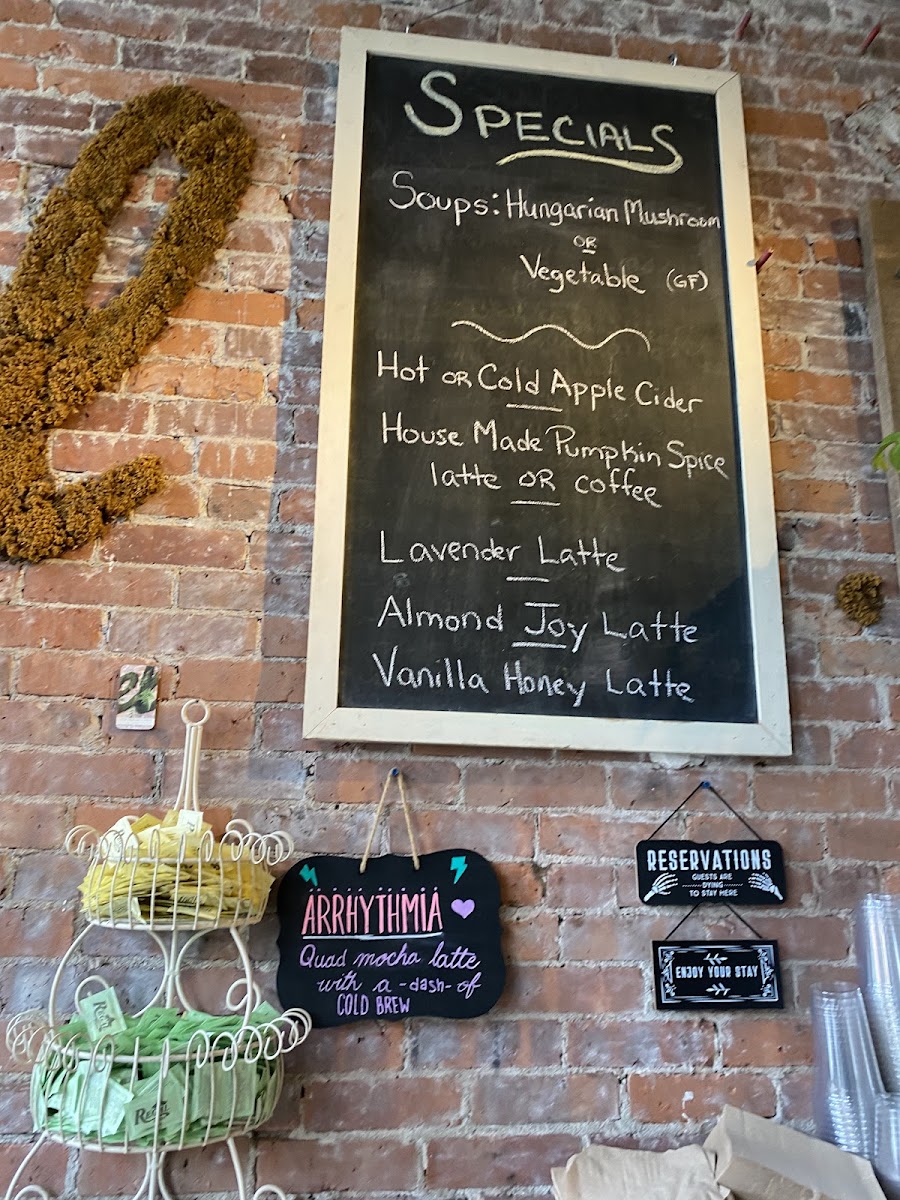 SPECIALS
Soups: Hungarian Mushroom
OR
Vegetable (GF)
Hot OR Cold Apple Cider
House Made Pumpkin Spice
latte OR coffee
Lavender Latte
Almond Joy Latte
Vanilla Honey Latte
ARRHYTHMIA
Quad mocha latte
with a -dash- of
COLD BREW
RESERVATIONS
GUESTS ARE
DYING
TO STAY HERE
ENJOY YOUR STAY